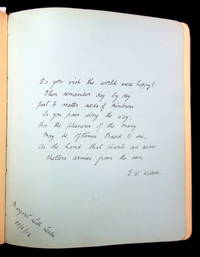 Do you wish the world were happy?
Then remember day by day
Just to scatter seeds of kindness
As you pass along the way,
For the pleasures of the many
May be ofttimes traced to one,
As the hand that plants an acorn
Shelters armies from the sun.
E. W. Wilcox.
Margaret